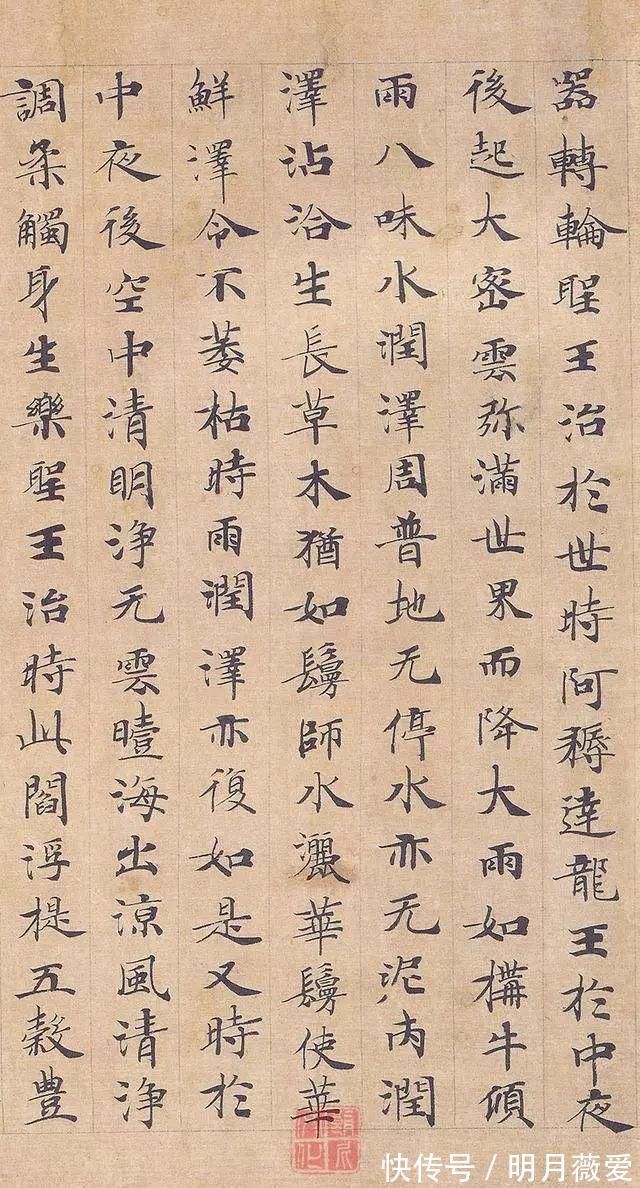 器轉輪聖王治於世時阿耨達龍王於中夜
後起大密雲弥滿世界而降大雨如構牛傾
雨八味水潤澤周普地无停水亦无泥内潤
澤沾洽生長草木猶如鬘師水灑華鬘使華
鮮澤令不萎枯時雨潤澤亦復如是又時於
中夜後空中清明浄无雲曀海出涼風清浄
調柔觸身生樂聖王治時此閻浮提五穀豊
快传号/明月薇爱